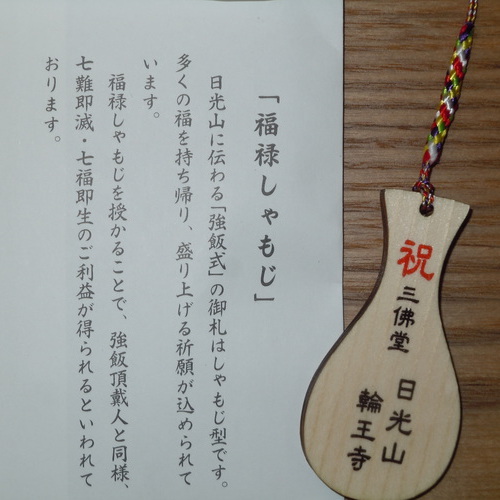 「福禄しゃもじ」
日光山に伝わる「強飯式」の御札はしゃもじ型です。
多くの福を持ち帰り、盛り上げる祈願が込められて
います。
福禄しゃもじを授かることで、強飯頂戴人と同様、
七難即滅・七福即生のご利益が得られるといわれて
おります。
祝
三佛堂
日光山
輪王寺